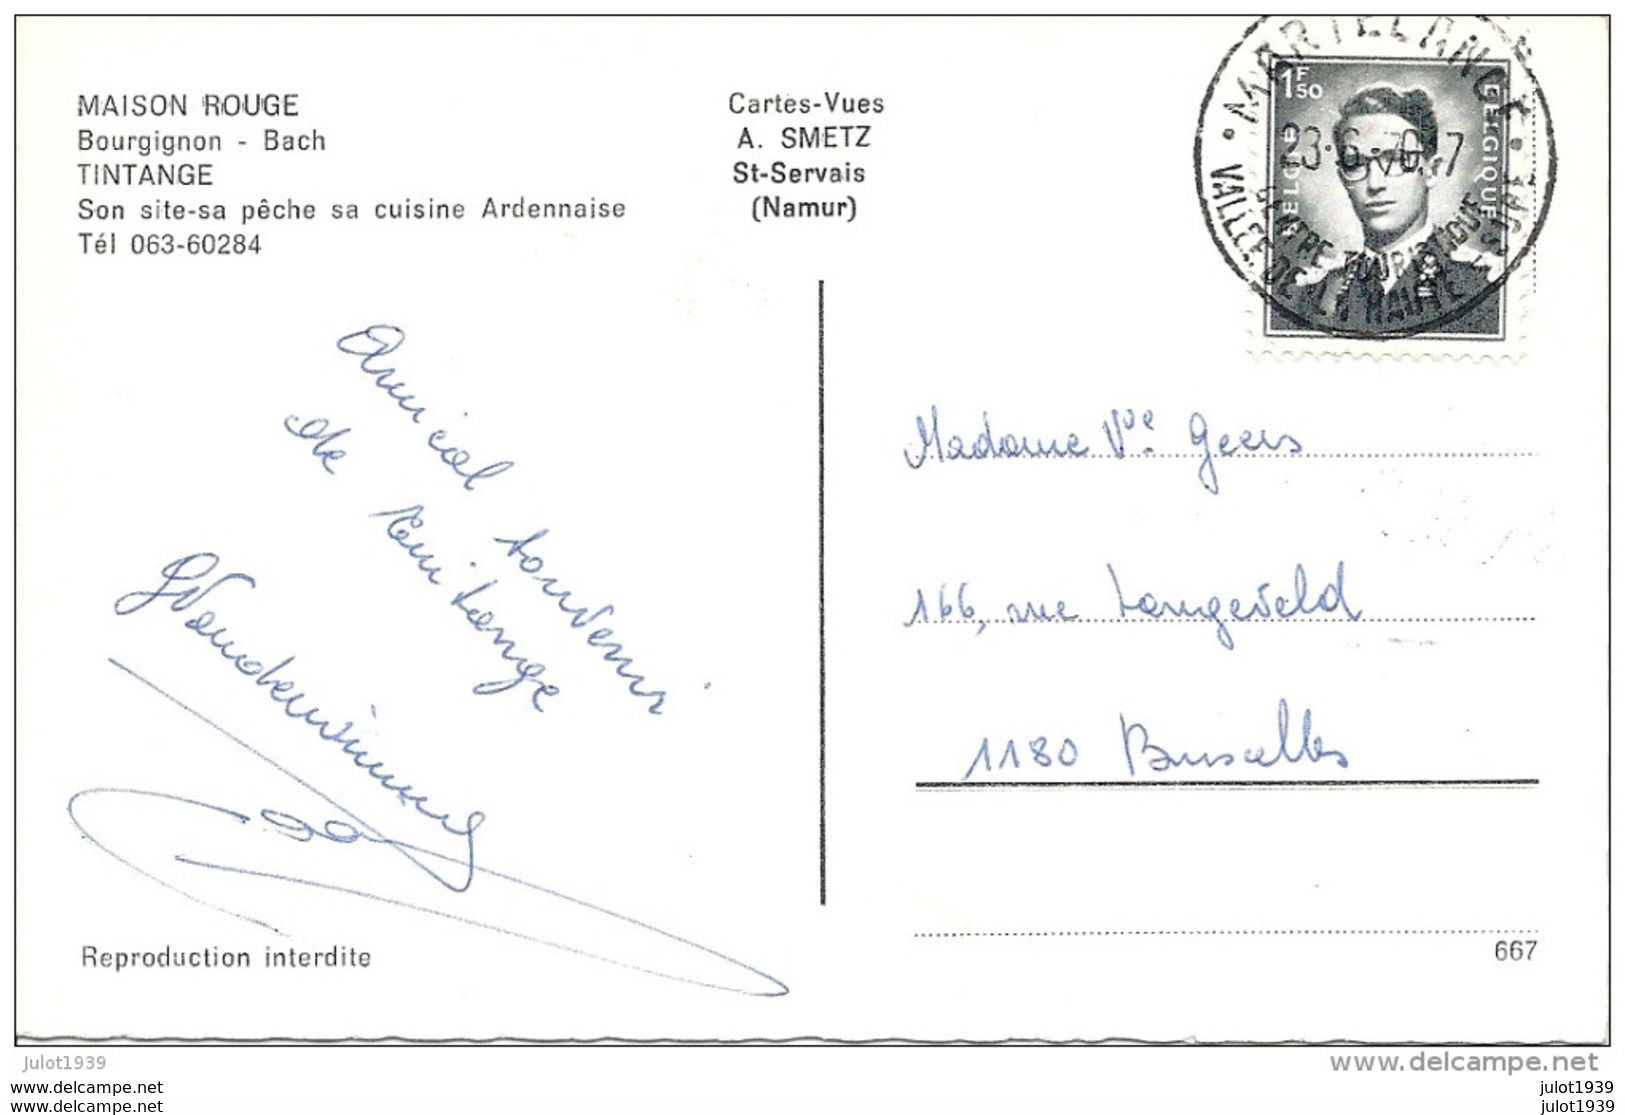 MAISON ROUGE
Bourgignon - Bach
TINTANGE
Son site-sa pêche sa cuisine Ardennaise
Tél 063-60284
Cartes-Vues
A. SMETZ
St-Servais
(Namur)
MARTELANGE
1F50
BELGIE BELGIQUE
23-6-70-17
CENTRE TOURISTIQUE
VALLEE DE LA HAUTE SURE
Amical souvenir
de Tintange
Madame Vve Geers
166, rue Langeveld
1180 Bruxelles
Reproduction interdite
667
julot1939
www.delcampe.net
www.delcampe.net
www.delcampe.net
julot1939
julot1939